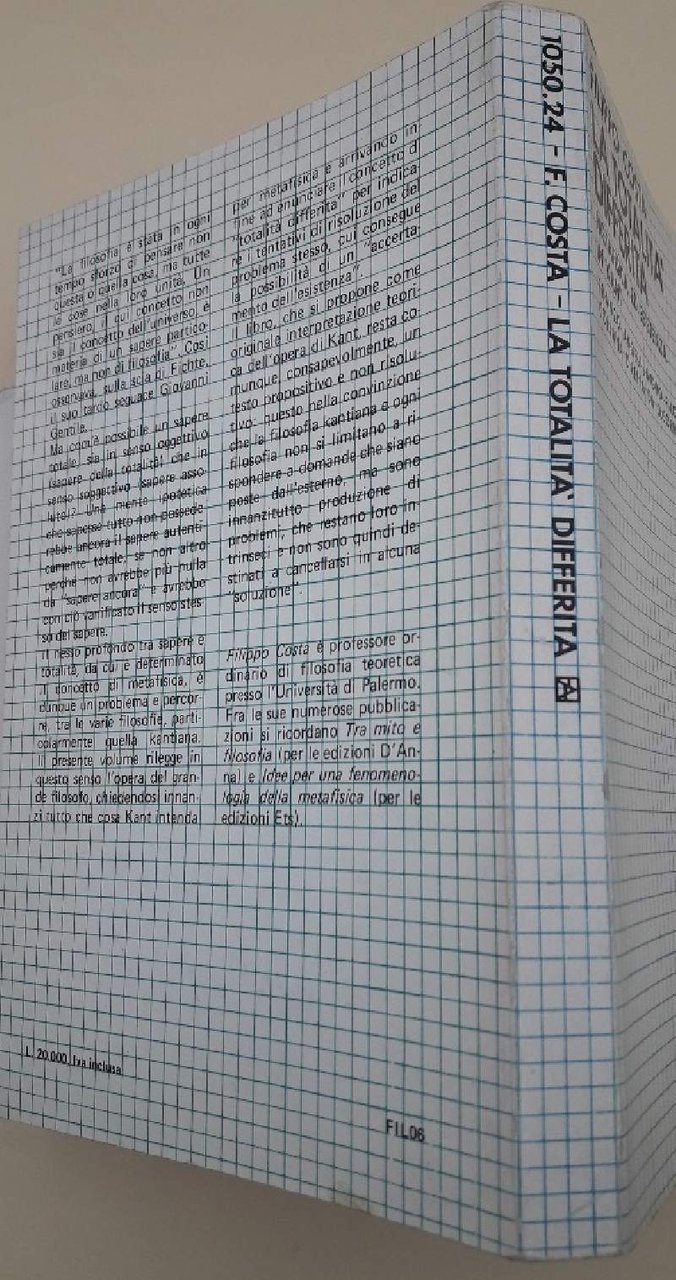 "La filosofia è stata in ogni
tempo sforzo di pensare non
questa o quella cosa, ma tutte
le cose nella loro unità. Un
pensiero, il cui concetto non
sia il concetto dell'universo è
materia di un sapere partico-
lare, ma non di filosofia". Così
osservava, sulla scia di Fichte,
il suo tardo seguace Giovanni
Gentile.
Ma com'è possibile un sapere
totale, sia in senso oggettivo
(sapere della totalità) che in
senso soggettivo (sapere asso-
luto)? Una mente ipotetica
che sapesse tutto non possede-
rebbe ancora il sapere autenti-
camente totale, se non altro
perché non avrebbe più nulla
da "sapere ancora" e avrebbe
con ciò vanificato il senso stes-
so del sapere.
Il nesso profondo tra sapere e
totalità, da cui è determinato
il concetto di metafisica, è
dunque un problema e percor-
re, tra le varie filosofie, parti-
colarmente quella kantiana.
Il presente volume rilegge in
questo senso l'opera del gran-
de filosofo, chiedendosi innan-
zi tutto che cosa Kant intenda
per metafisica e arrivando in-
fine ad enunciare il concetto di
"totalità differita" per indica-
re i tentativi di risoluzione del
problema stesso, cui consegue
la possibilità di un "accerta-
mento dell'esistenza".
Il libro, che si propone come
originale interpretazione teori-
ca dell'opera di Kant, resta co-
munque, consapevolmente, un
testo propositivo e non risolu-
tivo: questo nella convinzione
che la filosofia kantiana e ogni
filosofia non si limitano a ri-
spondere a domande che siano
poste dall'esterno, ma sono
innanzitutto produzione di
problemi, che restano loro in-
trinseci e non sono quindi de-
stinati a cancellarsi in alcuna
"soluzione".
Filippo Costa è professore or-
dinario di filosofia teoretica
presso l'Università di Palermo.
Fra le sue numerose pubblica-
zioni si ricordano Tra mito e
filosofia (per le edizioni D'An-
na) e Idee per una fenomeno-
logia della metafisica (per le
edizioni Ets).
L. 20.000, Iva inclusa
FIL06
1050.24 - F. COSTA - LA TOTALITA' DIFFERITA
LA TOTALITA'